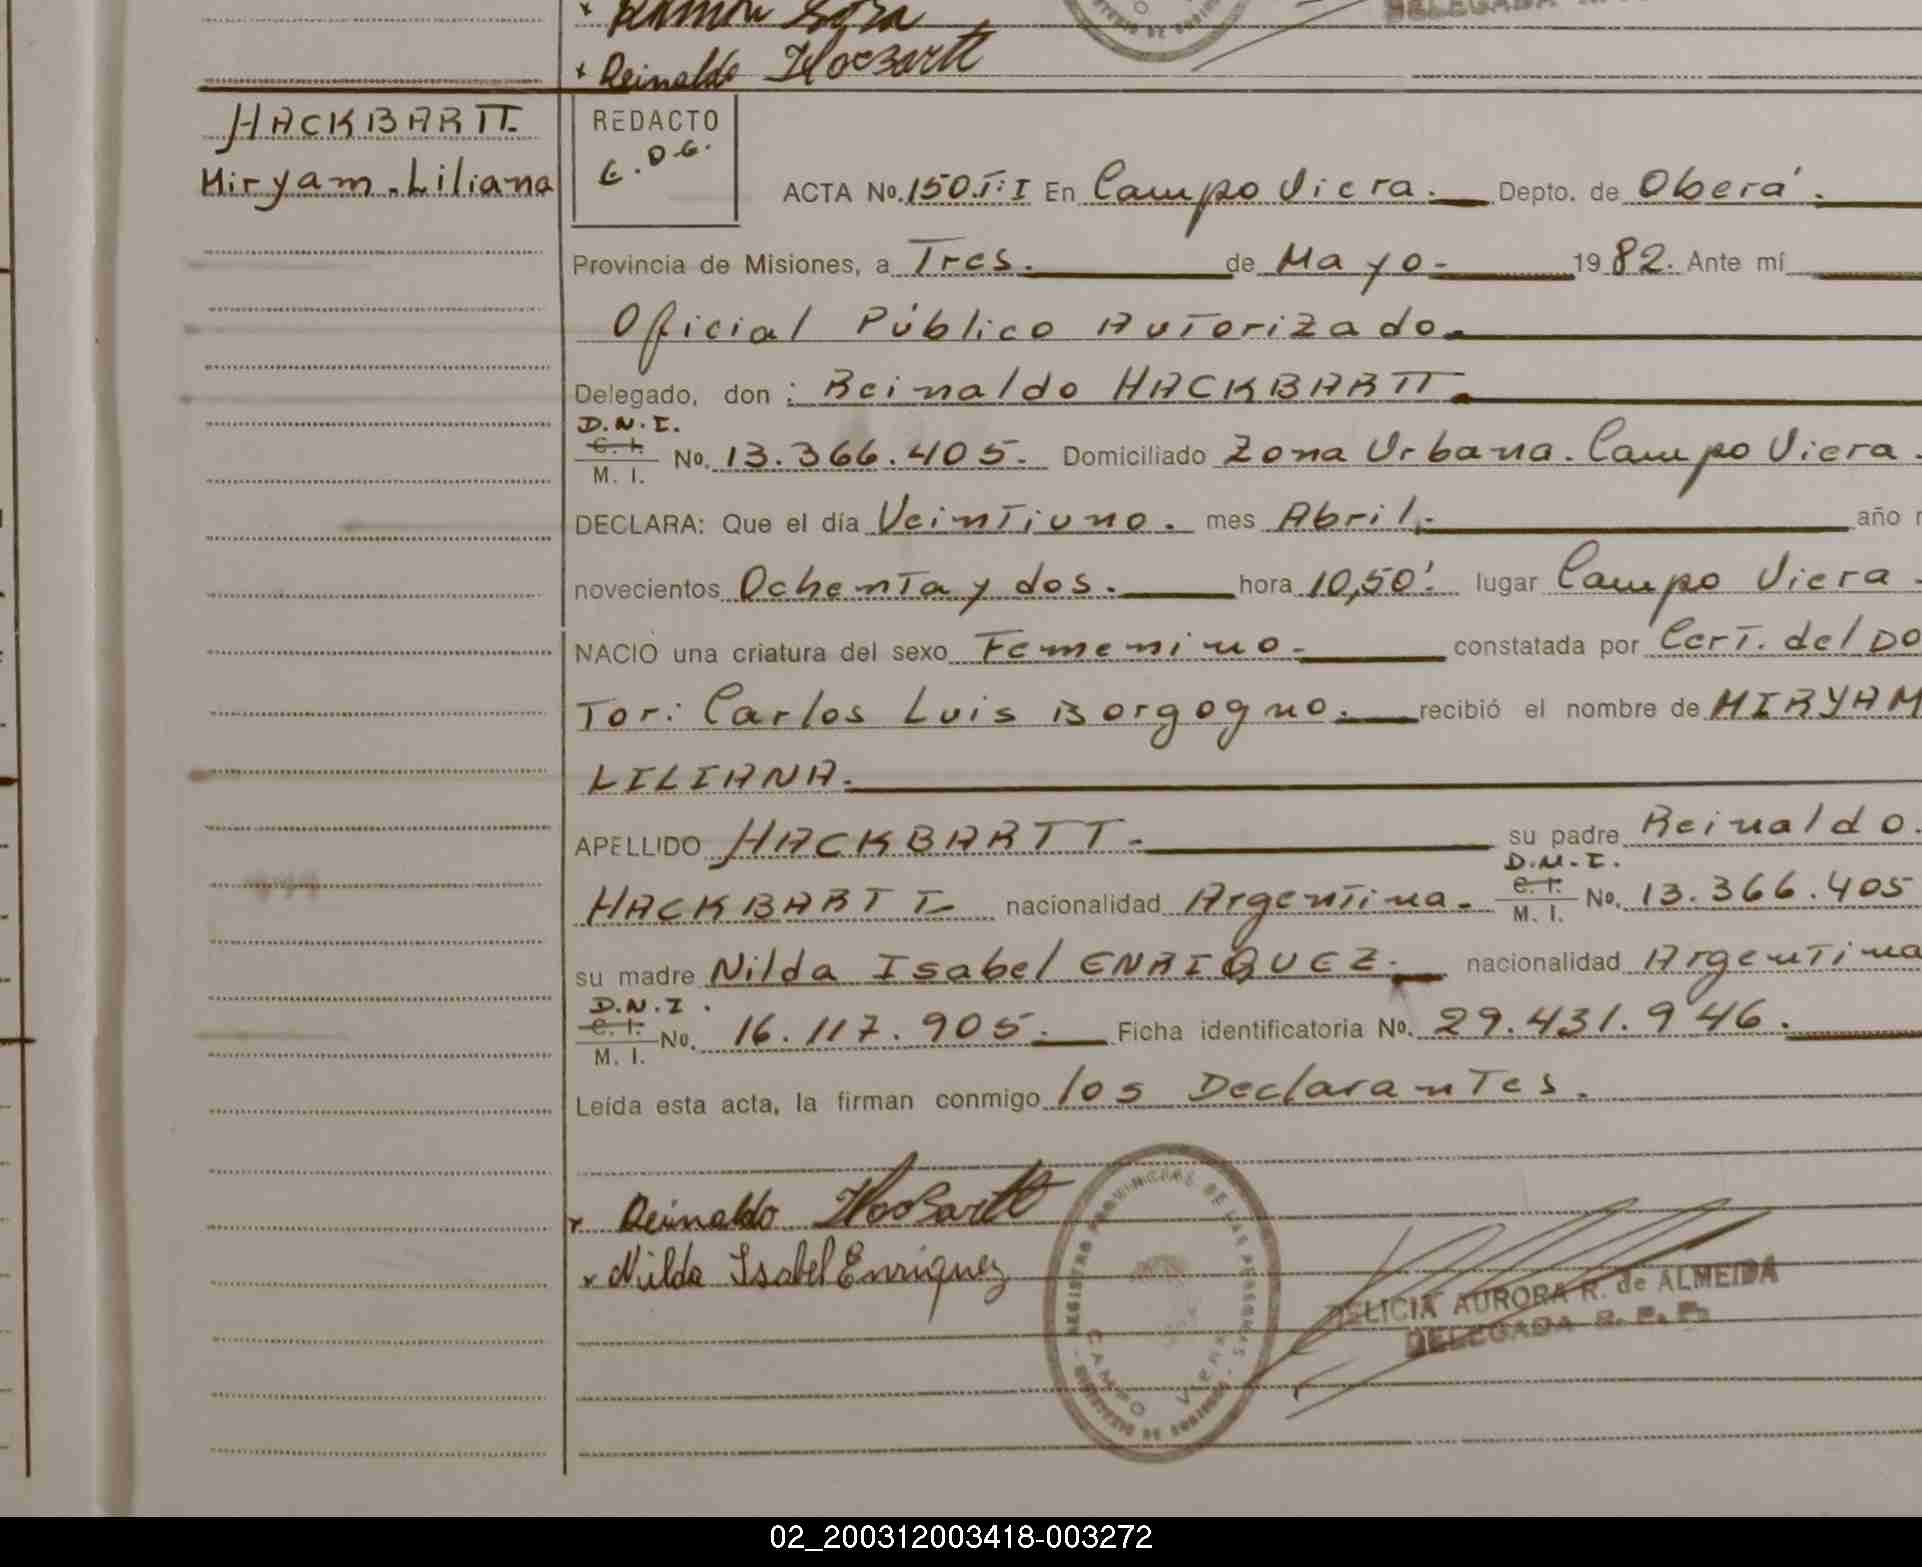 Ramón Sosa
DELEGADA
+ Reinaldo
HACKBARTT
Miryam.Liliana
REDACTO
ACTA No. 150.T:I En Campo Viera. Depto. de Oberá.
Provincia de Misiones, a Tres. de Mayo- 1982. Ante mí
Oficial Público Autorizado.
Delegado, don : Reinaldo HACKBARTT.
D.N.I.
C. I.
M. I. No. 13.366.405. Domiciliado Zona Urbana. Campo Viera.
DECLARA: Que el día Veintiuno. mes Abril.- año
novecientos Ochenta y dos. hora 10,50'. lugar Campo Viera.
NACIO una criatura del sexo Femenino.- constatada por Cert. del Do
Tor: Carlos Luis Borgogno. recibió el nombre de MIRYAM
LILIANA.
APELLIDO HACKBARTT.- su padre Reinaldo.
D.N.I.
HACKBARTT- nacionalidad Argentina. C. I. M. I. No. 13.366.405
su madre Nilda Isabel ENRIQUEZ.- nacionalidad Argentina
D.N.I.
C. I.
M. I. No. 16.117.905. Ficha identificatoria No. 29.431.946.
Leída esta acta, la firman conmigo los Declarantes.
Reinaldo
Nilda Isabel Enriquez
REGISTRO PROVINCIAL DE LAS PERSONAS
CAMPO VIERA
DELICIA AURORA R. de ALMEIDA
DELEGADA R. P. P.
02_200312003418-003272